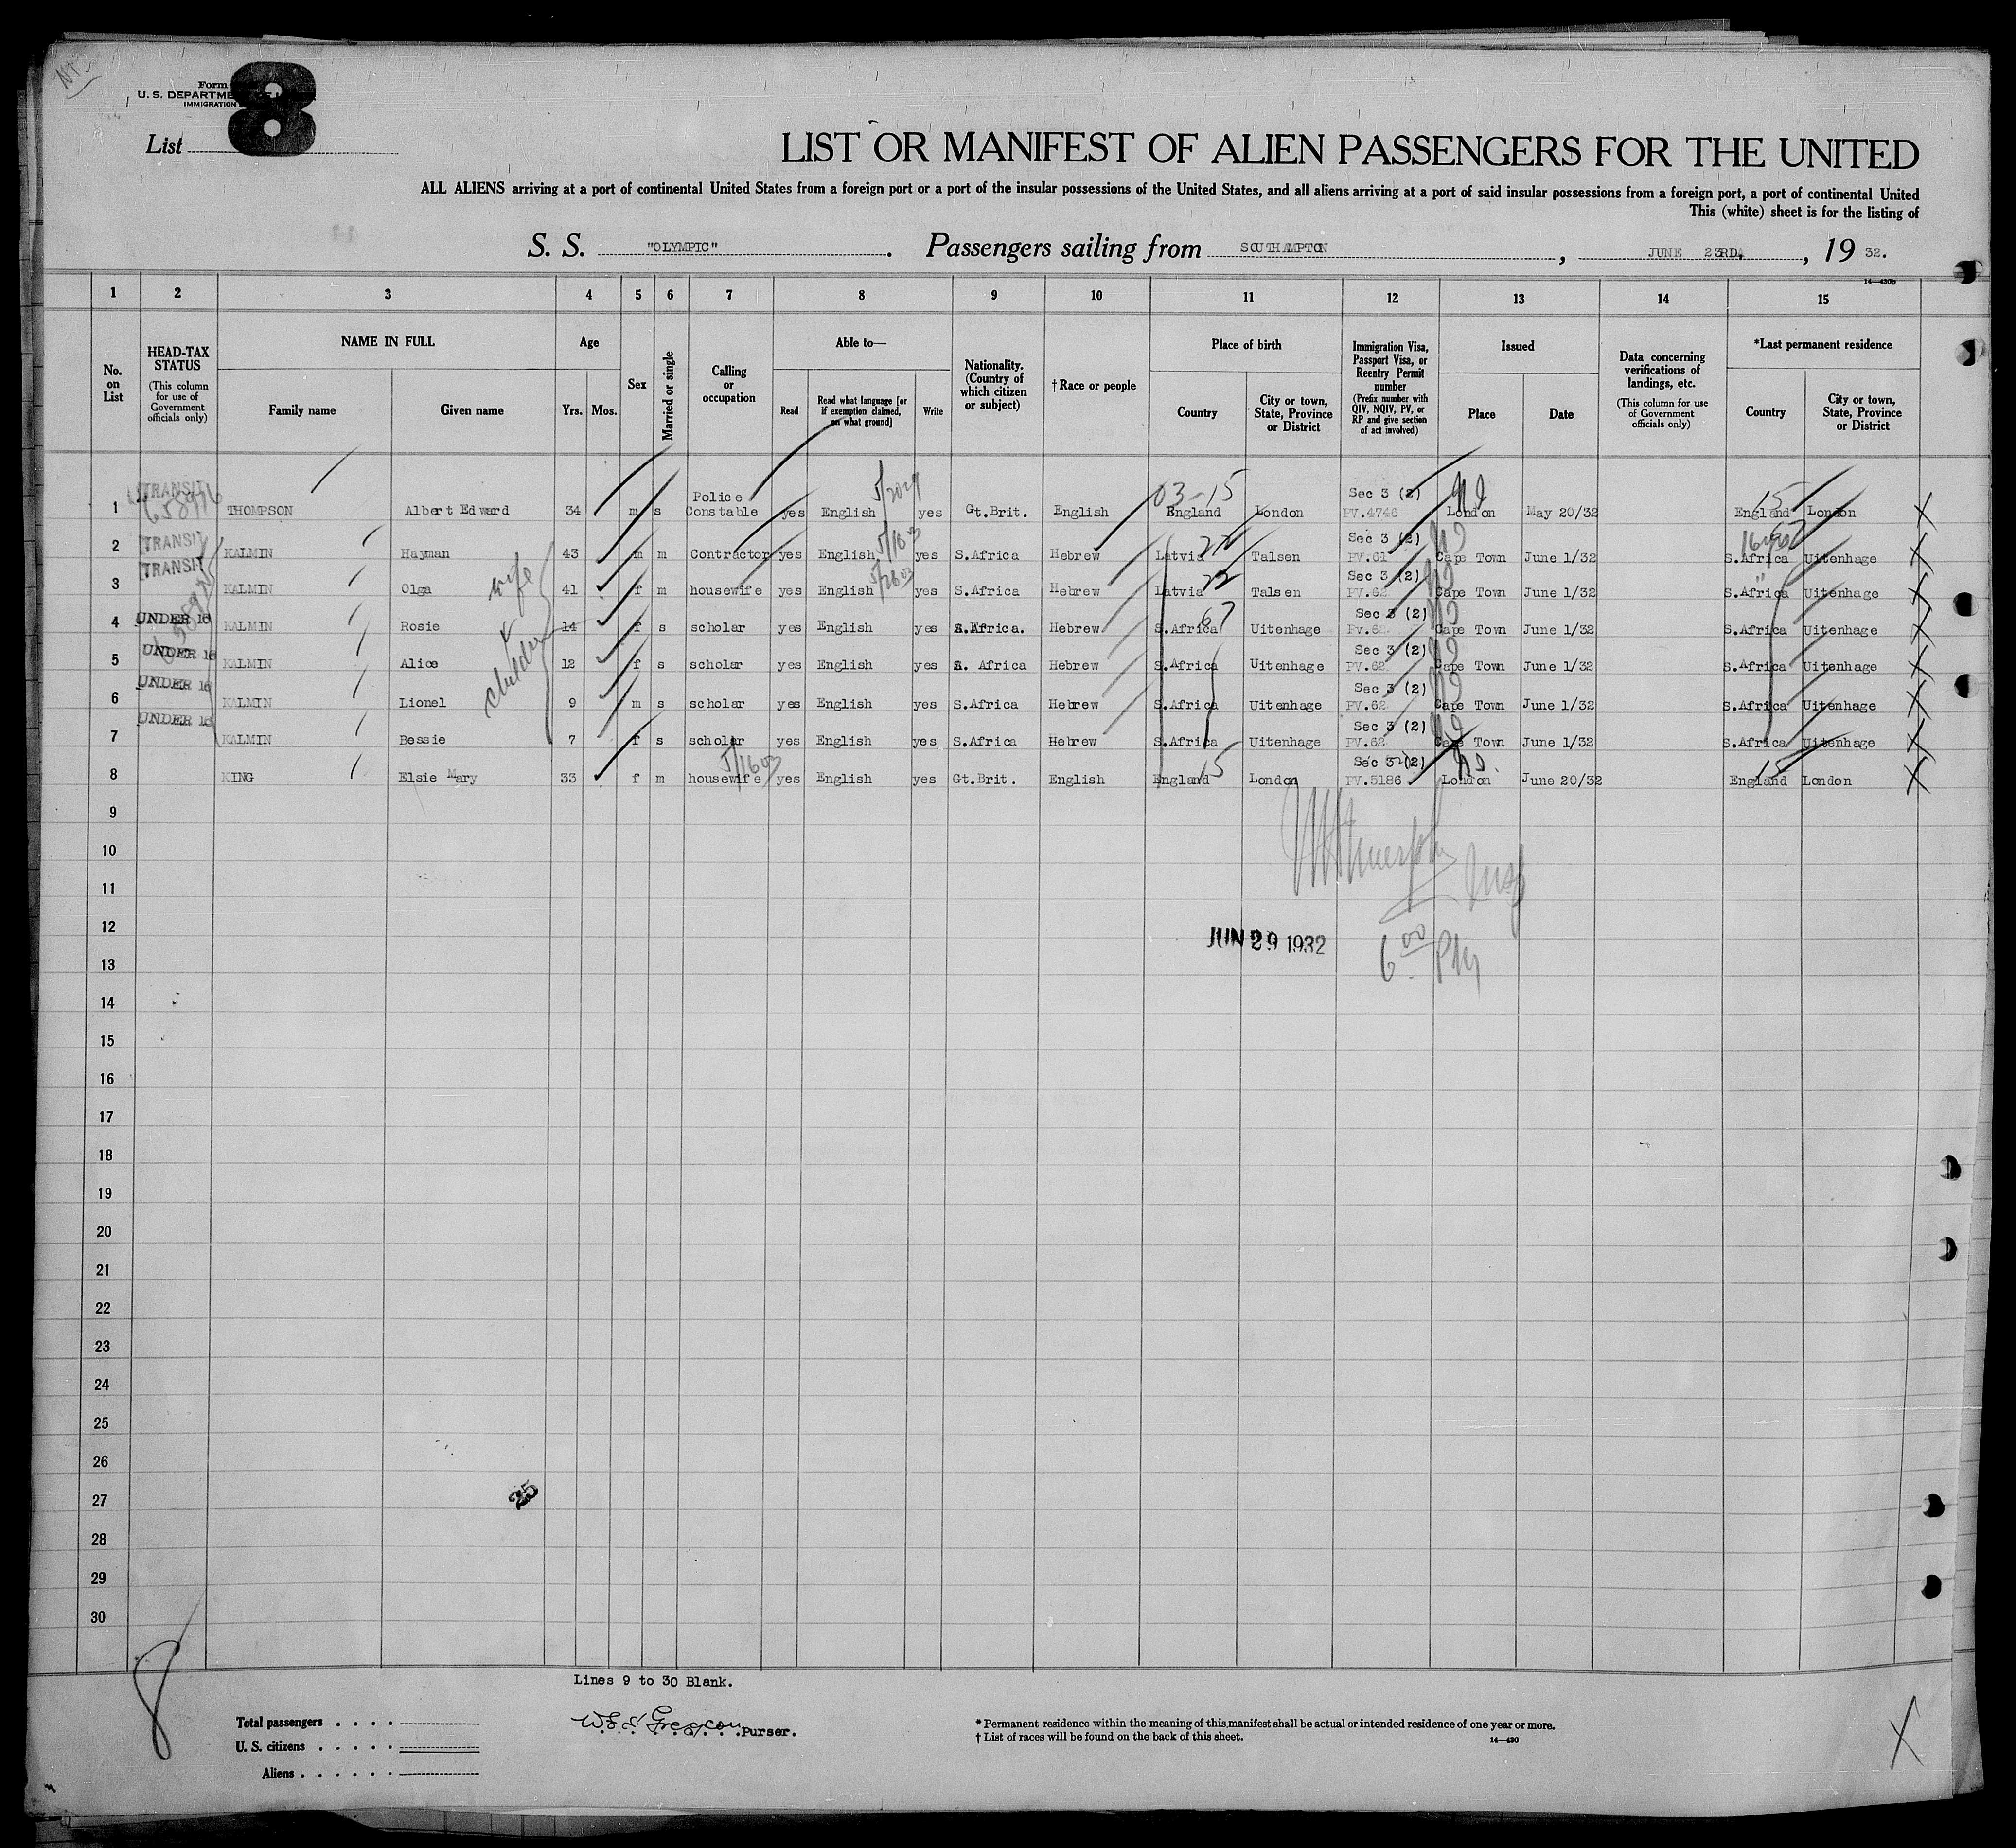 Form
U. S. DEPARTME
IMMIGRATION
8
List
LIST OR MANIFEST OF ALIEN PASSENGERS FOR THE UNITED
ALL ALIENS arriving at a port of continental United States from a foreign port or a port of the insular possessions of the United States, and all aliens arriving at a port of said insular possessions from a foreign port, a port of continental United
This (white) sheet is for the listing of
S. S. "OLYMPIC". Passengers sailing from SOUTHAMPTON, JUNE 23RD., 19 32.
14—430b
1 2 3 4 5 6 7 8 9 10 11 12 13 14 15
No. on List
HEAD-TAX STATUS (This column for use of Government officials only)
NAME IN FULL
Family name Given name
Age
Yrs. Mos.
Sex
Married or single
Calling or occupation
Able to—
Read
Read what language [or if exemption claimed, on what ground]
Write
Nationality. (Country of which citizen or subject)
†Race or people
Place of birth
Country
City or town, State, Province or District
Immigration Visa, Passport Visa, or Reentry Permit number (Prefix number with QIV, NQIV, PV, or RP and give section of act involved)
Issued
Place Date
Data concerning verifications of landings, etc. (This column for use of Government officials only)
*Last permanent residence
Country
City or town, State, Province or District
1 TRANSIT THOMPSON Albert Edward 34 m s Police Constable yes English yes Gt.Brit. English 03-15 England London Sec 3 (2) PV.4746 London May 20/32 15 England London
2 TRANSIT KALMIN Hayman 43 m m Contractor yes English yes S.Africa Hebrew Latvia 22 Talsen Sec 3 (2) PV.61 Cape Town June 1/32 S.Africa Uitenhage
3 TRANSIT KALMIN Olga wife 41 f m housewife yes English yes S.Africa Hebrew Latvia 22 Talsen Sec 3 (2) PV.62 Cape Town June 1/32 S.Africa Uitenhage
4 UNDER 16 KALMIN Rosie & 14 f s scholar yes English yes S.Africa. Hebrew S.Africa 67 Uitenhage Sec 3 (2) PV.62 Cape Town June 1/32 S.Africa Uitenhage
5 UNDER 16 KALMIN Alice children 12 f s scholar yes English yes S. Africa Hebrew S.Africa Uitenhage Sec 3 (2) PV.62 Cape Town June 1/32 S.Africa Uitenhage
6 UNDER 16 KALMIN Lionel 9 m s scholar yes English yes S.Africa Hebrew S.Africa Uitenhage Sec 3 (2) PV.62 Cape Town June 1/32 S.Africa Uitenhage
7 UNDER 16 KALMIN Bessie 7 f s scholar yes English yes S.Africa Hebrew S.Africa Uitenhage Sec 3 (2) PV.62 Cape Town June 1/32 S.Africa Uitenhage
8 KING Elsie Mary 33 f m housewife yes English yes Gt.Brit. English England 15 London Sec 3 (2) PV.5186 London June 20/32 15 England London
9
10
11
12
JUN 29 1932
6 00 PM
13
14
15
16
17
18
19
20
21
22
23
24
25
26
27
25
28
29
30
8
Lines 9 to 30 Blank.
Total passengers
U. S. citizens
Aliens
Purser.
* Permanent residence within the meaning of this manifest shall be actual or intended residence of one year or more.
† List of races will be found on the back of this sheet.
14—430